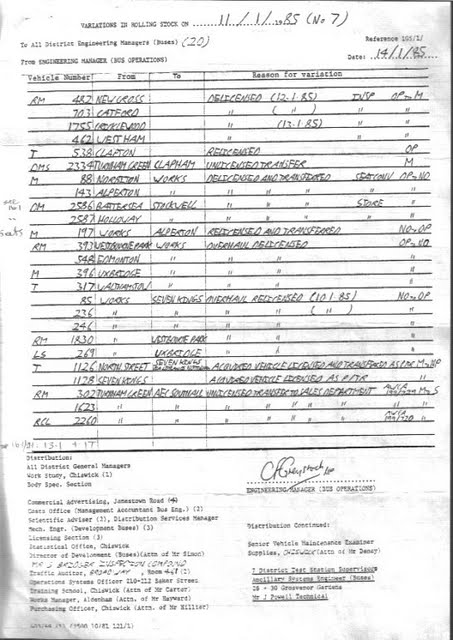 VARIATIONS IN ROLLING STOCK ON 11/1/1985 (No 7)
To All District Engineering Managers (Buses) (20) Reference 105/1/
From ENGINEERING MANAGER (BUS OPERATIONS) Date: 14/1/85
Vehicle Number From To Reason for variation
RM 482 NEW CROSS DELICENSED (12.1.85) INSP OP-M
703 CATFORD " ( " ) "
1755 CRICKLEWOOD " (13.1.85) " "
462 WEST HAM " " "
T 538 CLAPTON RELICENSED OP
DMS 2334 TURNHAM GREEN CLAPHAM UNLICENSED TRANSFER M
M 88 NORBITON WORKS DELICENSED AND TRANSFERRED SEATCONV OP-NO
143 ALPERTON " " " " "
DM 2586 BATTERSEA STOCKWELL " " " STORE "
2587 HOLLOWAY " " " " " "
M 197 WORKS ALPERTON RELICENSED AND TRANSFERRED NO-OP
RM 397 WESTBOURNE PARK WORKS OVERHAUL DELICENSED OP-NO
548 EDMONTON " " " "
M 396 UXBRIDGE " " " "
T 317 WALTHAMSTOW " " " "
85 WORKS SEVEN KINGS OVERHAUL RELICENSED (10.1.85) NO-OP
236 " " " " ( " ) "
246 " " " " "
RM 1830 " WESTBOURNE PARK " " "
LS 269 " UXBRIDGE " " "
T 1126 NORTH STREET SEVEN KINGS ACQUIRED VEHICLE LICENSED AND TRANSFERRED AS P/TR
1128 SEVEN KINGS ACQUIRED VEHICLE LICENSED AS P/TR "
RM 302 TURNHAM GREEN AEC SOUTHALL UNLICENSED TRANSFER TO SALES DEPARTMENT
1623 " " " " " " "
RCL 2260 " " " " " "
Distribution:
All District General Managers
Work Study, Chiswick (1)
Body Spec. Section
ENGINEERING MANAGER (BUS OPERATIONS)
Commercial Advertising, Jamestown Road
Costs Office (Management Accountant Bus Eng.) (2)
Scientific Adviser (2), Distribution Services Manager
Mech. Engr. (Development Buses) (3)
Licensing Section (3)
Statistical Office, Chiswick
Director of Development (Buses)(Attn of Mr Simon)
Operations Systems Officer 210-212 Baker Street
Training School, Chiswick (Attn of Mr Carter)
Works Manager, Aldenham (Attn of Mr Hayward)
Purchasing Officer, Chiswick (Attn of Mr Hillier)
Distribution Continued:
Senior Vehicle Maintenance Examiner
Supplies, CHISWICK (Attn of Mr Dancy)
7 District Test Station Supervisors
Ancillary Systems Engineer (Buses)
28 - 30 Grosvenor Gardens
Mr J Powell Technical